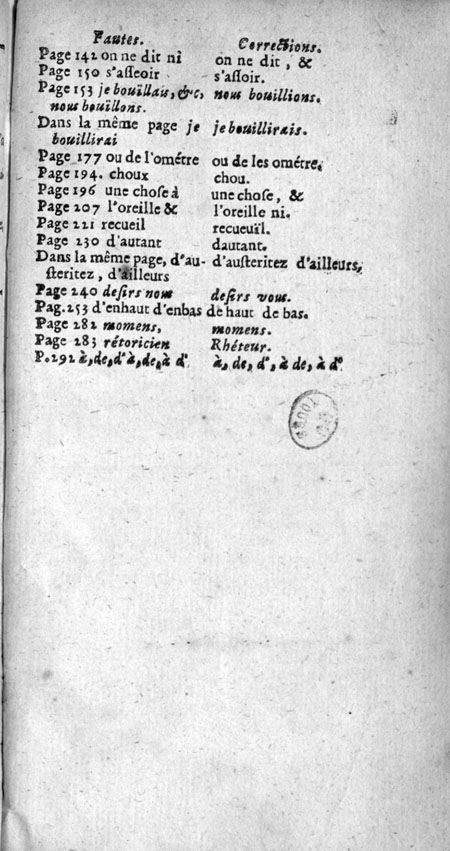 Fautes. Corrections.
Page 142 on ne dit ni on ne dit, &
Page 150 s'aſſeoir s'aſſoir.
Page 153 je boüillais, &c, nous boüillions.
nous boüillons.
Dans la même page je je boüillirais.
boüillirai
Page 177 ou de l'ométre ou de les ométre.
Page 194. choux chou.
Page 196 une choſe à une choſe, &
Page 207 l'oreille & l'oreille ni.
Page 221 recueil recueuïl.
Page 230 d'autant dautant.
Dans la même page, d'au- d'auſteritez d'ailleurs,
ſteritez, d'ailleurs
Page 240 deſirs nous deſirs vous.
Pag. 253 d'enhaut d'enbas de haut de bas.
Page 282 momens, momens.
Page 283 rétoricien Rhéteur.
P. 292 à, de, d' à, de, à d' à, de, d', à de, à d'
TOURS